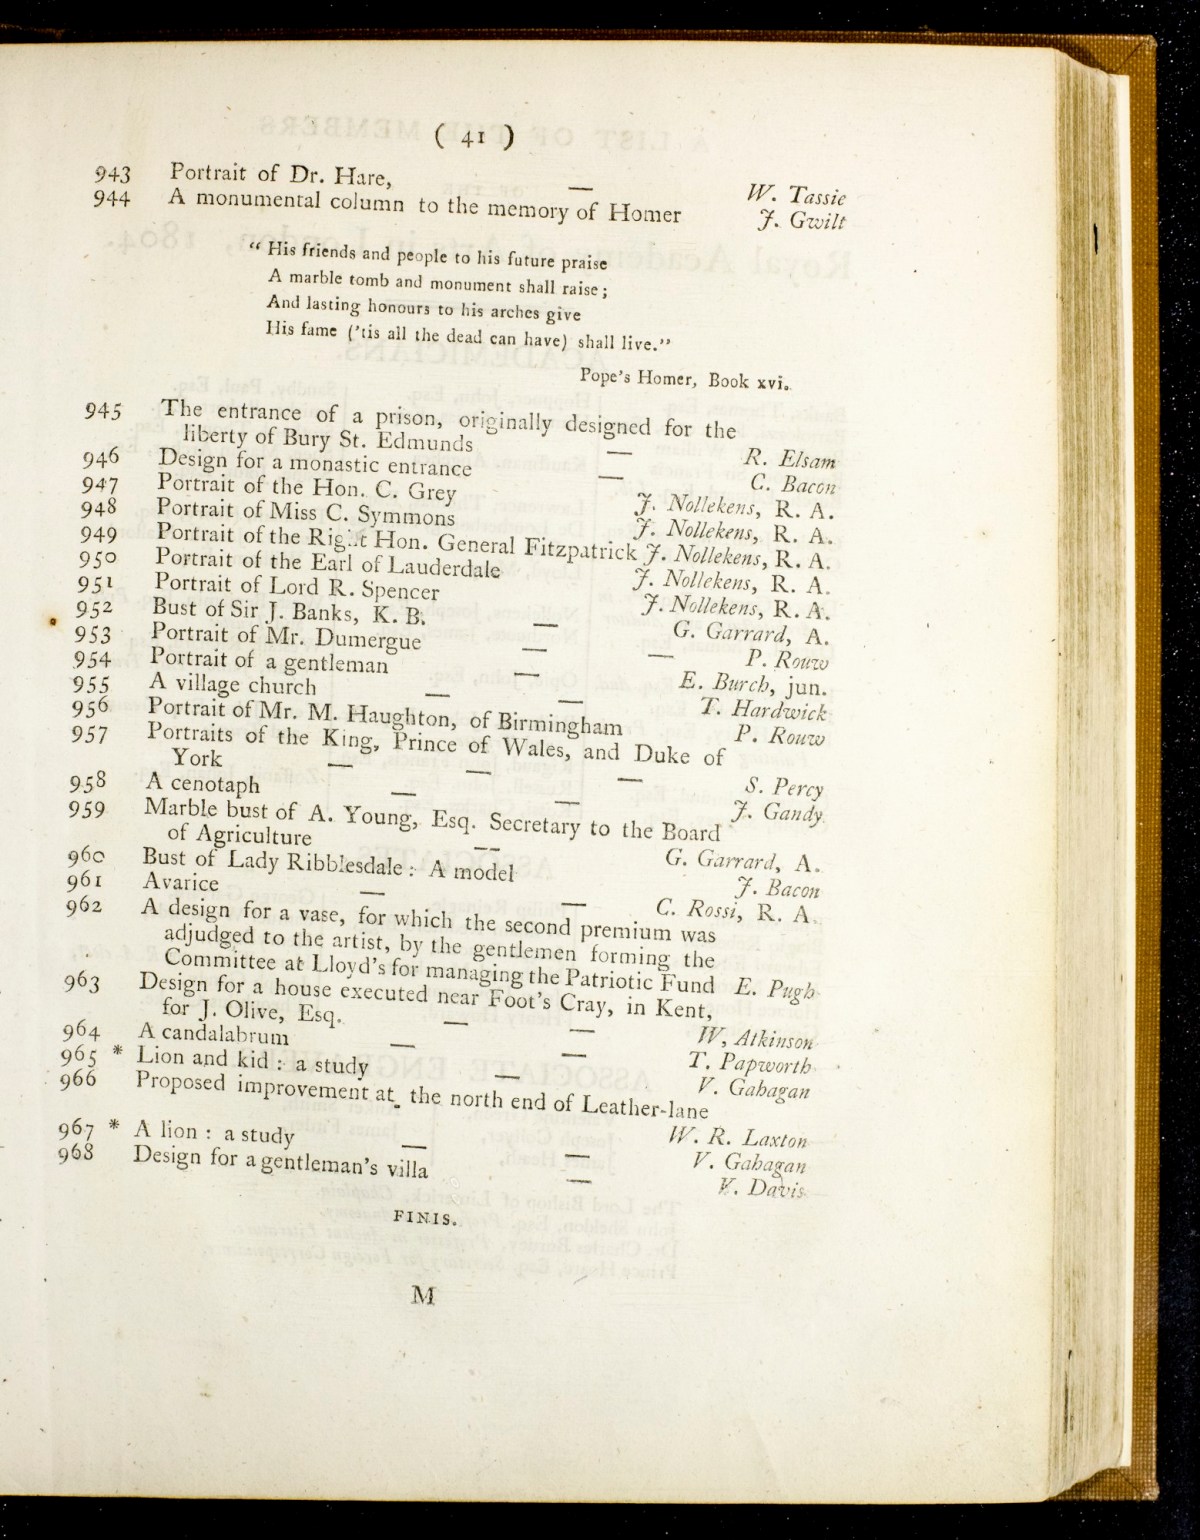 ( 41 )
943 Portrait of Dr. Hare, — W. Tassie
944 A monumental column to the memory of Homer J. Gwilt
“ His friends and people to his future praise
A marble tomb and monument shall raise ;
And lasting honours to his arches give
His fame (’tis all the dead can have) shall live.”
Pope’s Homer, Book xvi.
945 The entrance of a prison, originally designed for the
liberty of Bury St. Edmunds — R. Elsam
946 Design for a monastic entrance — C. Bacon
947 Portrait of the Hon. C. Grey J. Nollekens, R. A.
948 Portrait of Miss C. Symmons J. Nollekens, R. A.
949 Portrait of the Right Hon. General Fitzpatrick J. Nollekens, R. A.
950 Portrait of the Earl of Lauderdale J. Nollekens, R. A.
951 Portrait of Lord R. Spencer J. Nollekens, R. A.
952 Bust of Sir J. Banks, K. B. — G. Garrard, A.
953 Portrait of Mr. Dumergue — — P. Rouw
954 Portrait of a gentleman — E. Burch, jun.
955 A village church — — T. Hardwick
956 Portrait of Mr. M. Haughton, of Birmingham P. Rouw
957 Portraits of the King, Prince of Wales, and Duke of
York — — — S. Percy
958 A cenotaph — — J. Gandy
959 Marble bust of A. Young, Esq. Secretary to the Board
of Agriculture — G. Garrard, A.
960 Bust of Lady Ribblesdale : A model J. Bacon
961 Avarice — — C. Rossi, R. A.
962 A design for a vase, for which the second premium was
adjudged to the artist, by the gentlemen forming the
Committee at Lloyd’s for managing the Patriotic Fund E. Pugh
963 Design for a house executed near Foot’s Cray, in Kent,
for J. Olive, Esq. — — W, Atkinson
964 A candalabrum — — T. Papworth
965 * Lion and kid : a study — V. Gahagan
966 Proposed improvement at the north end of Leather-lane
W. R. Laxton
967 * A lion : a study — — V. Gahagan
968 Design for a gentleman’s villa — V. Davis
FINIS.
M